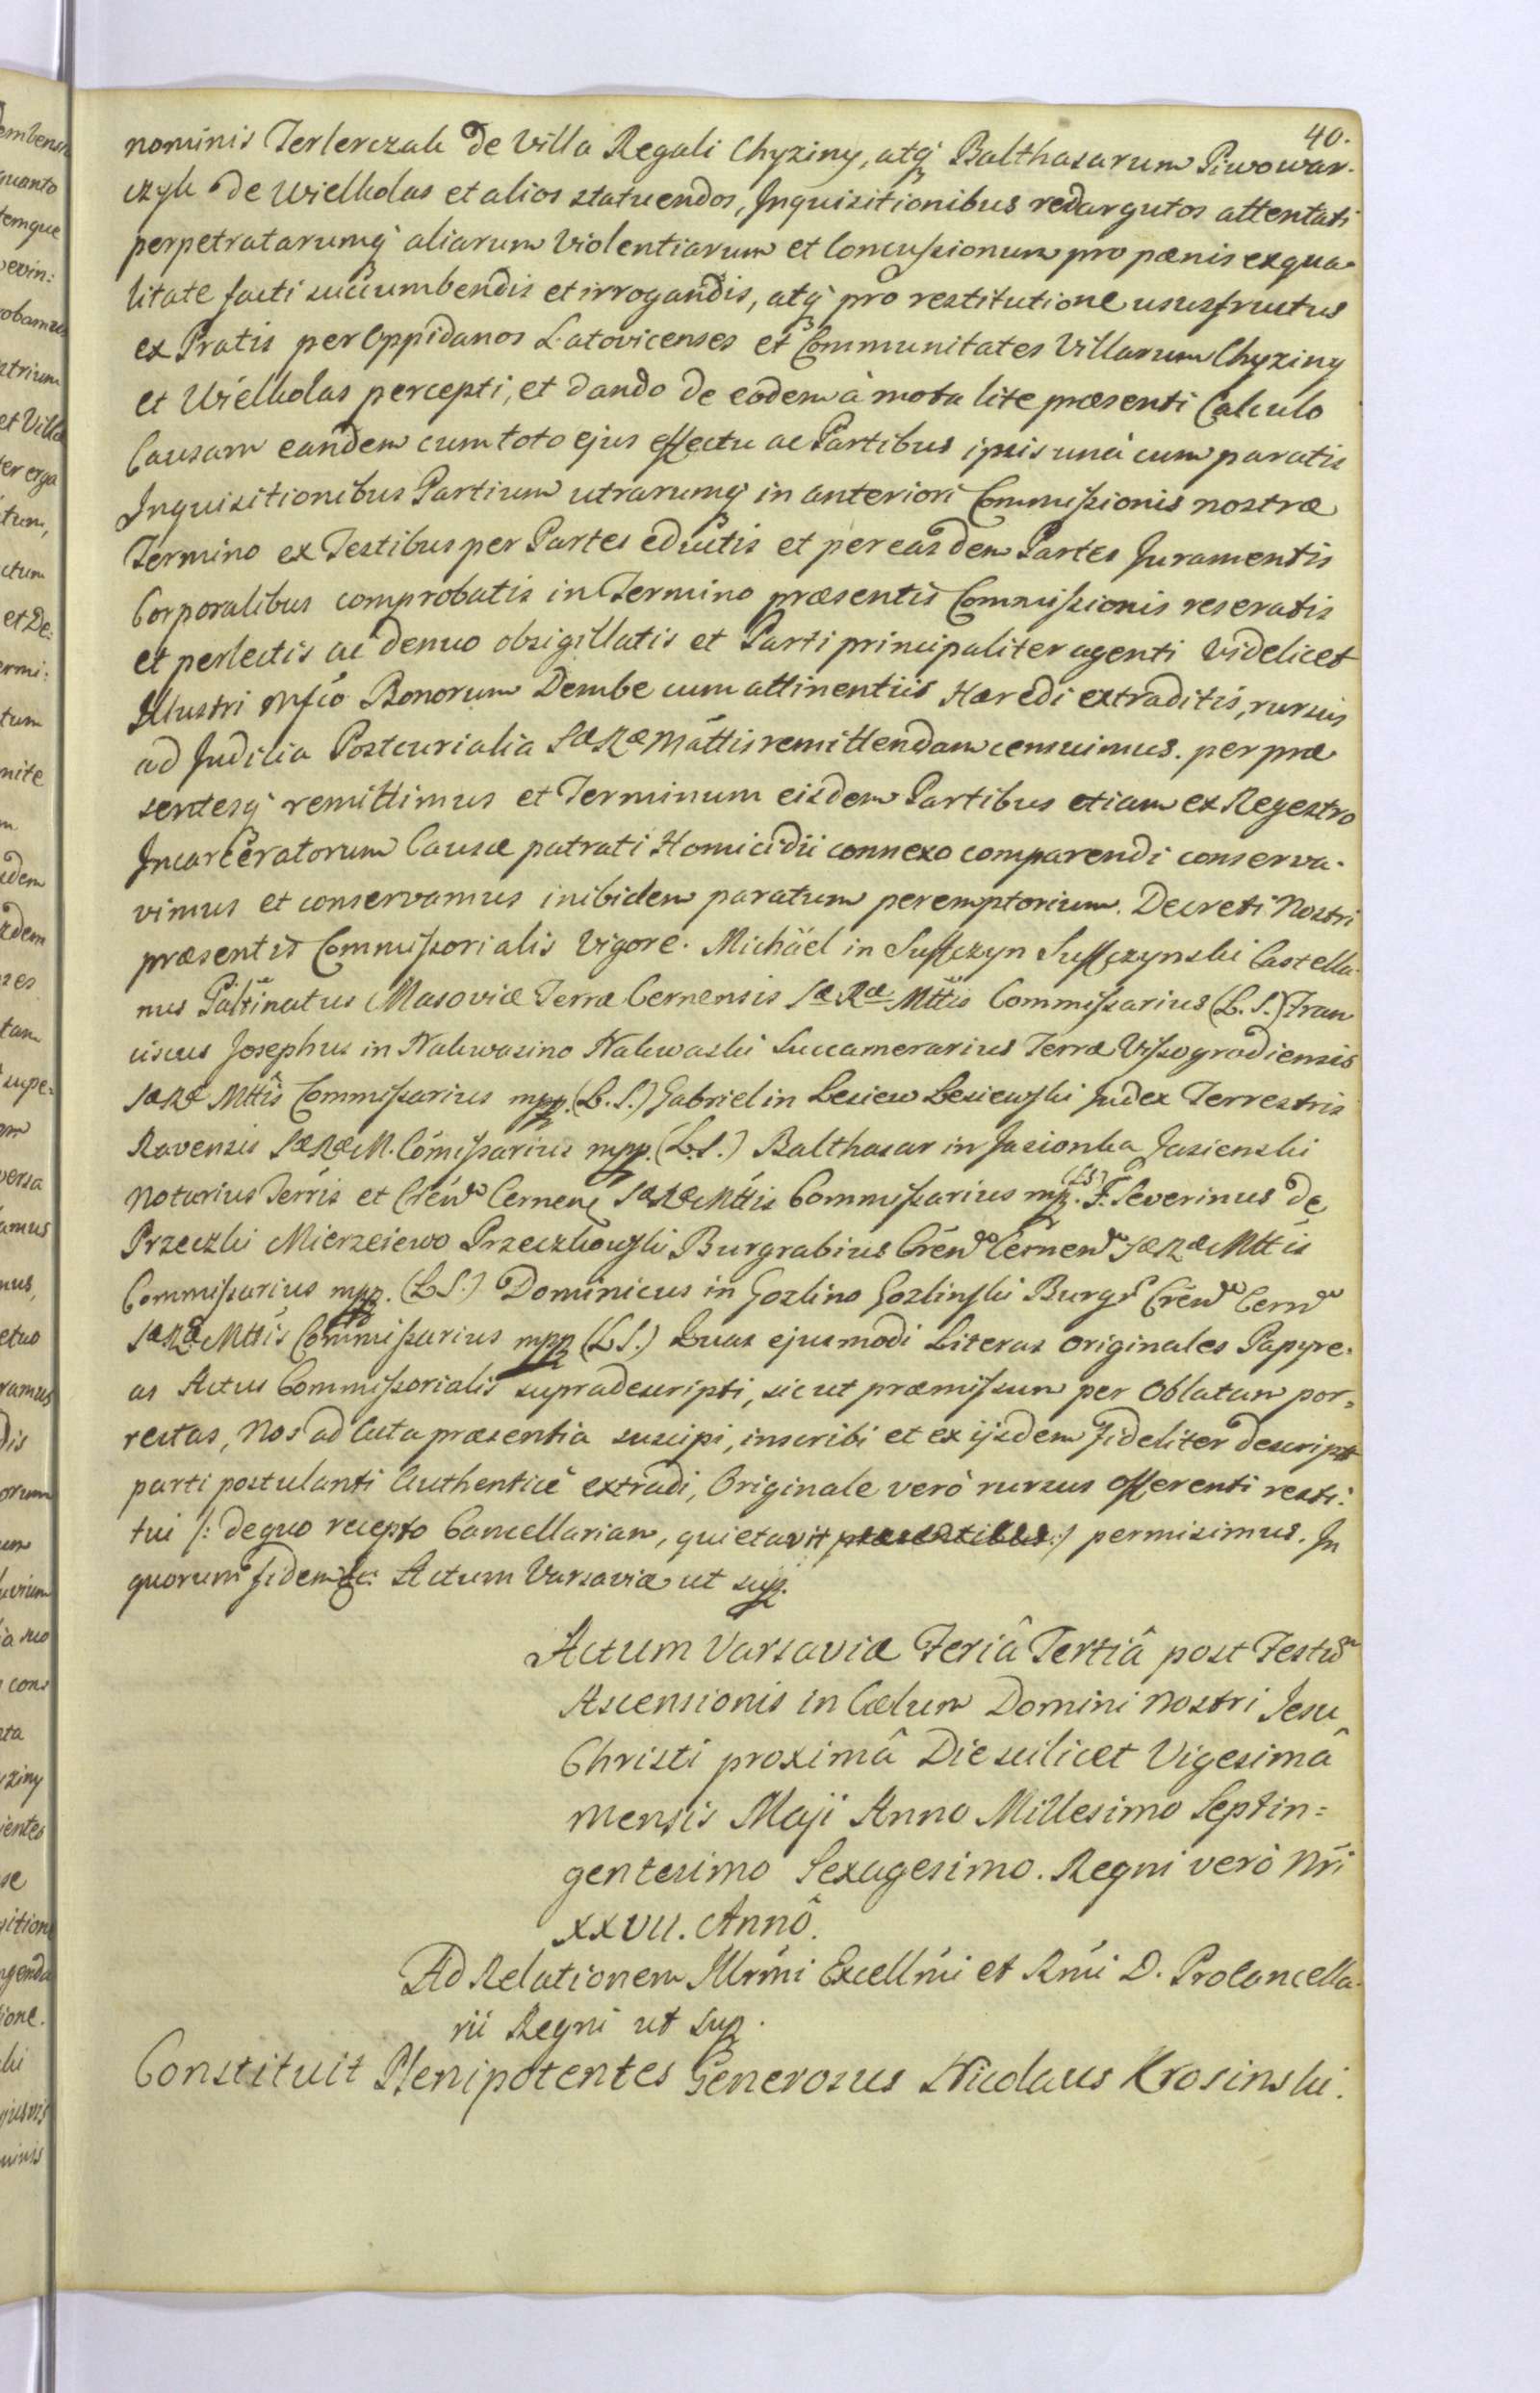 40.
nominis Terlerczak de Villa Regali Chyziny, atq́ Balthasarum Piwowar-
czyk de Wielkolas et alios statuendos, Inquisitionibus redargutos attentati
perpetratarumq́ aliarum Violentiarum et Concussionum pro pænis ex qua-
litate facti succumbendis et irrogandis, atq́ pro restitutione ususfructus
ex Pratis per Oppidanos Latovicenses et Communitates Villarum Chyziny
et Wielkolas percepti, et dando de eodem à mota lite præsenti Calculo
Causam eandem cum toto ejus effectu ac Partibus ipsis unà cum paratis
Inquisitionibus Partium utrarumq́ in anteriori Commissionis nostræ
Termino ex Testibus per Partes eductis et per easdem Partes Juramentis
Corporalibus comprobatis in Termino præsentis Commissionis reseratis
et perlectis ac denuo obsigillatis et Parti principaliter agenti videlicet
Illustri Mfco Bonorum Dembe cum attinentiis Hæredi extraditis, rursus
ad Judicia Postcurialia SæRæ Mattis remittendam censuimus. per præ
sentesq́ remittimus et Terminum eisdem Partibus etiam ex Regestro
Incarceratorum Causæ patrati Homicidii connexo comparendi conserva-
vimus et conservamus inibidem paratum peremptorium. Decreti Nostri
præsentis Commissorialis Vigore. Michäel in Suffczyn Suffczynski Castella-
nus Paltinatus Masoviæ Terræ Cernensis Sæ Ræ Mttis Commissarius (L. S.) Fran
ciscus Josephus in Nakwasino Nakwaski Succamerarius Terræ Vissogrodiensis
SæRæ Mttis Commissarius mpp. (L. S.) Gabriel in Lesiew Lesiewski Judex Terrestris
Ravensis SæRæM. Comissarius mpp. (L. S.) Balthasar in Jasionka Jasienski
Notarius Terris et Crend Cernene SæRæ Mttis Commissarius mpp. (LS) F. Severinus de
Przeczki Mierzeiewo Przeczkowski Burgrabius Crend Cernend SæRæ Mttis
Commissarius mpp. (L S.) Dominicus in Gozlino Gozlinski Burgs Crend Cernd
SæRæ Mttis Commissarius mpp (L S.) Quas ejusmodi Literas Originales Papyre-
as Actus Commissorialis supradescripti, sicut præmissum per Oblatam por=
rectas, Nos ad Acta præsentia suscipi, inscribi et ex ijsdem fideliter descript
parti postulanti Authenticè extradi, Originale verò rursus Offerenti resti-
tui /: de quo recepto Cancellariam, quietavit præsentibus :/ permisimus. In
quorum fidem &c: Actum Varsaviæ ut sup.
Actum Varsaviæ Feriâ Tertiâ post Festũ
Ascensionis in Cælum Domini Nostri Jesu
Christi proximâ Die scilicet Vigesimâ
mensis Maji Anno Millesimo Septin=
gentesimo Sexagesimo. Regni verò Nri
XXVII. Annô.
Ad Relationem Illrmi Excellmi et Rmi D. Procancella-
rii Regni ut sup.
Constituit Plenipotentes Generosus Nicolaus Krosinski.